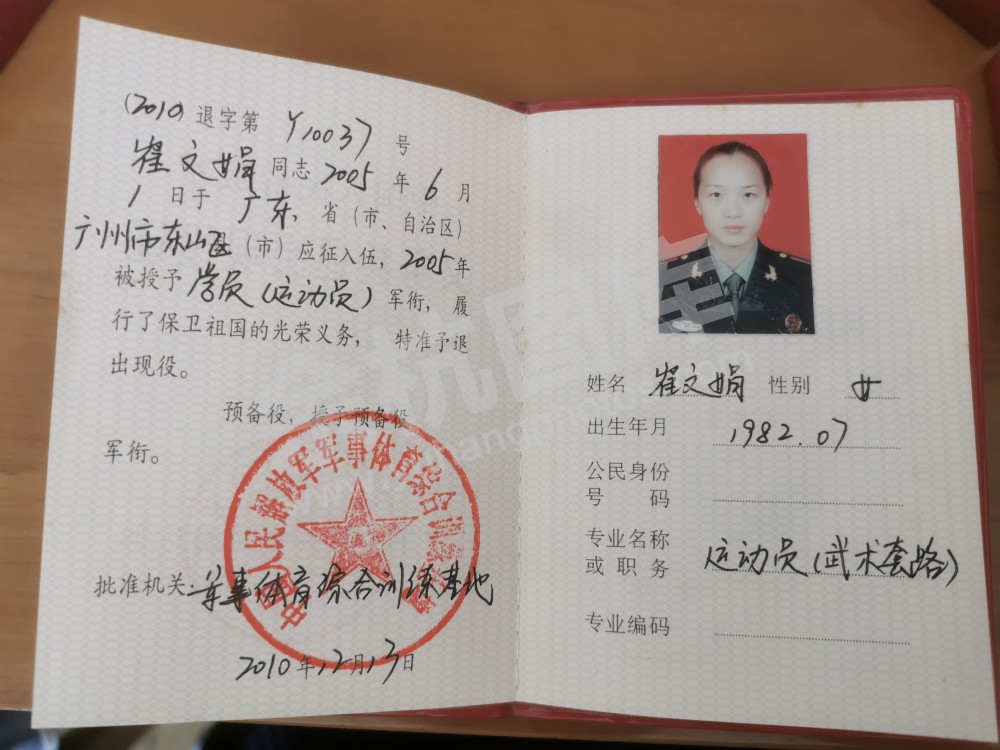 (2010) 退字第 Y10037 号
崔文娟 同志 2005 年 6 月
1 日于 广东 省（市、自治区）
广州市东山区（市）应征入伍，2005年
被授予 学员（运动员）军衔，履
行了保卫祖国的光荣义务，特准予退
出现役。
预备役，授予预备役
军衔。
中国人民解放军军事体育综合训练基地
批准机关：军事体育综合训练基地
2010年12月13日
姓名 崔文娟 性别 女
出生年月 1982.07
公民身份
号码
专业名称
或职务 运动员（武术套路）
专业编码